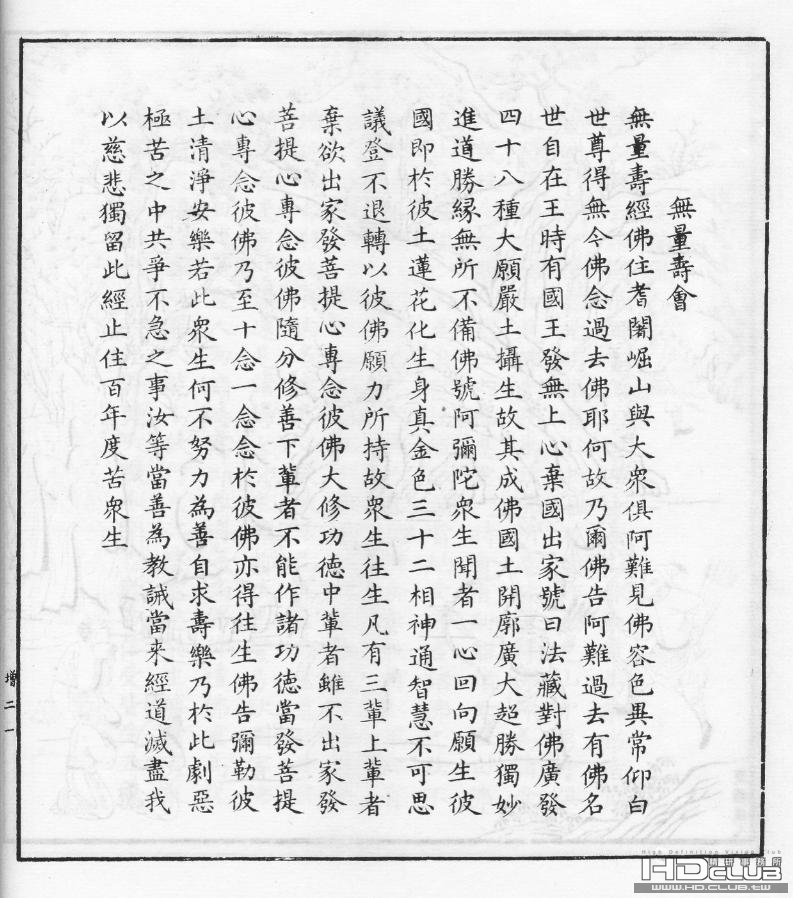 無量壽會
無量壽經佛住耆闍崛山與大衆俱阿難見佛容色異常仰白
世尊得無今佛念過去佛耶何故乃爾佛告阿難過去有佛名
世自在王時有國王發無上心棄國出家號曰法藏對佛廣發
四十八種大願嚴土攝生故其成佛國土開廓廣大超勝獨妙
進道勝緣無所不備佛號阿彌陀衆生聞者一心回向願生彼
國即於彼土蓮花化生身真金色三十二相神通智慧不可思
議登不退轉以彼佛願力所持故衆生往生凡有三輩上輩者
棄欲出家發菩提心專念彼佛大修功德中輩者雖不出家發
菩提心專念彼佛隨分修善下輩者不能作諸功德當發菩提
心專念彼佛乃至十念一念念於彼佛亦得往生佛告彌勒彼
土清淨安樂若此衆生何不努力為善自求壽樂乃於此劇惡
極苦之中共爭不急之事汝等當善為教誡當来經道滅盡我
以慈悲獨留此經止住百年度苦衆生
增二一
High Definition Vision Club
HDCLUB
精研事務所
www.HD.CLUB.tw